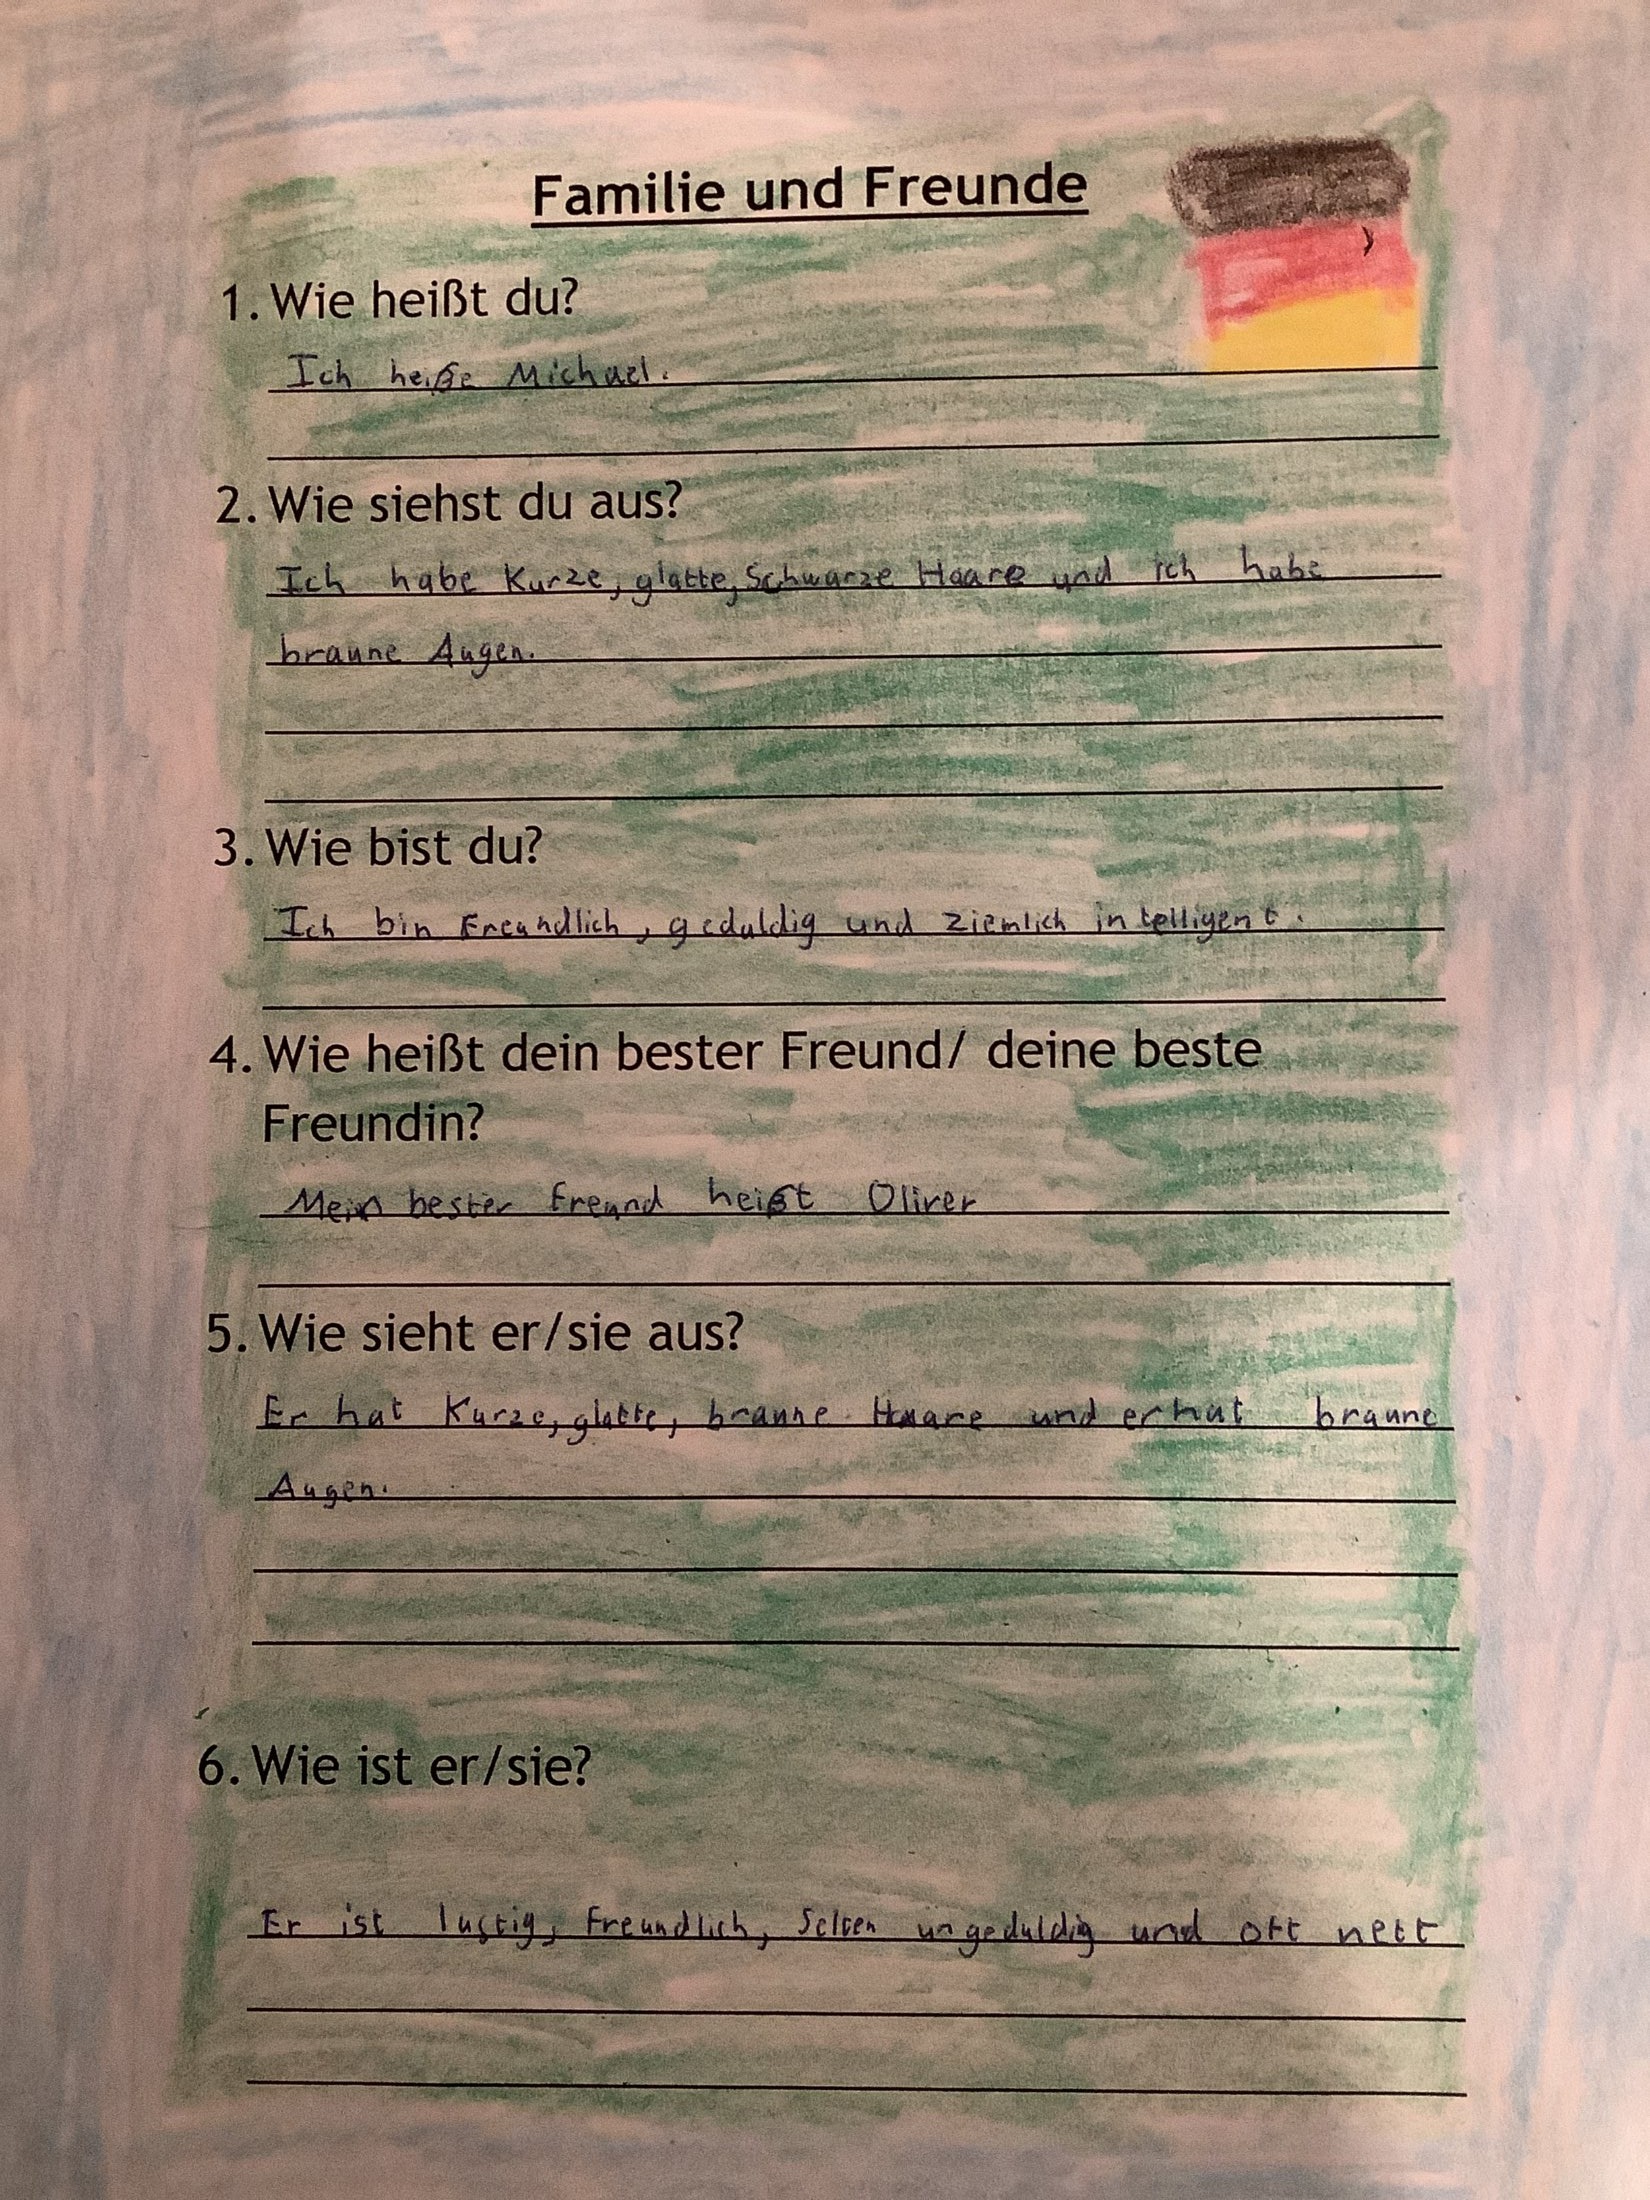 Familie und Freunde
1. Wie heißt du?
Ich heiße Michael.
2. Wie siehst du aus?
Ich habe Kurze, glatte, Schwarze Haare und ich habe
braune Augen.
3. Wie bist du?
Ich bin Freundlich, geduldig und ziemlich intelligent.
4. Wie heißt dein bester Freund/ deine beste
Freundin?
Mein bester Freund heißt Oliver
5. Wie sieht er/sie aus?
Er hat Kurze, glatte, braune Haare und er hat braune
Augen.
6. Wie ist er/sie?
Er ist lustig, Freundlich, Selten ungeduldig und oft nett